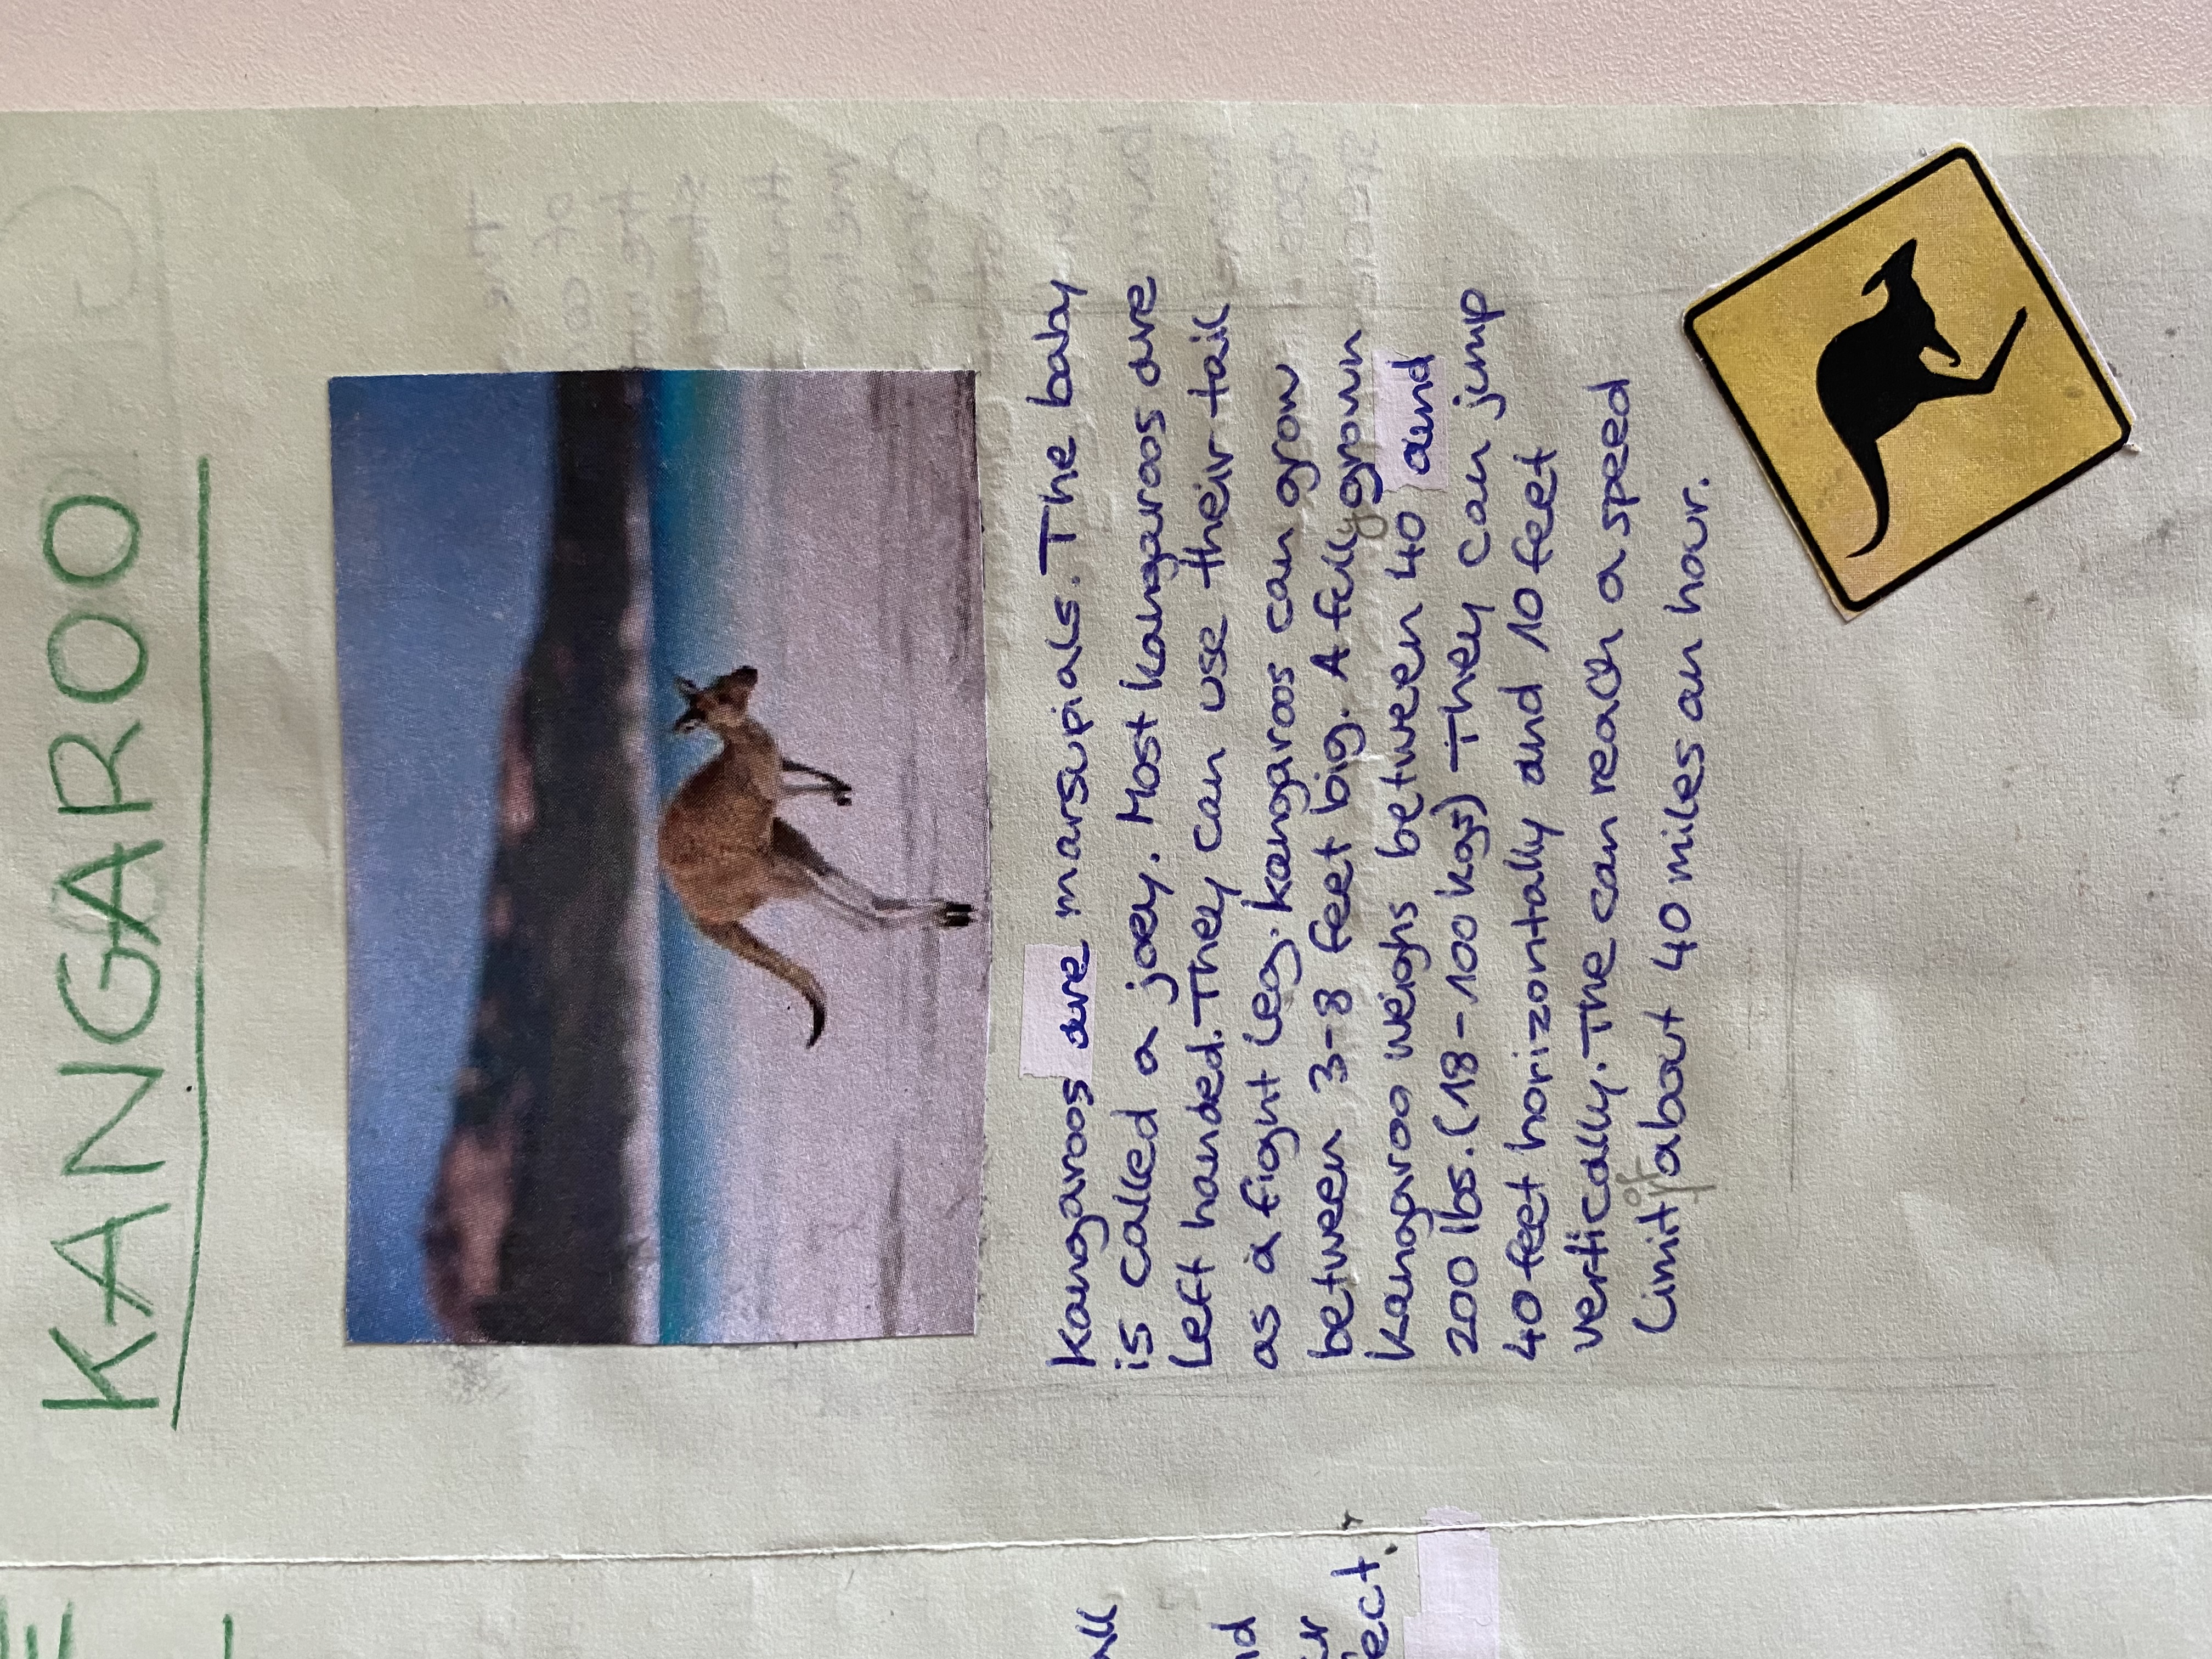 KANGAROO
Kangaroos are marsupials. The baby
is called a joey. Most kangaroos are
left handed. They can use their tail
as a fight leg. Kangaroos can grow
between 3-8 feet big. A fully grown
kangaroo weighs between 40 and
200 lbs. (18-100 kgs) They can jump
40 feet horizontally and 10 feet
vertically. The can reach a speed
limit of about 40 miles an hour.